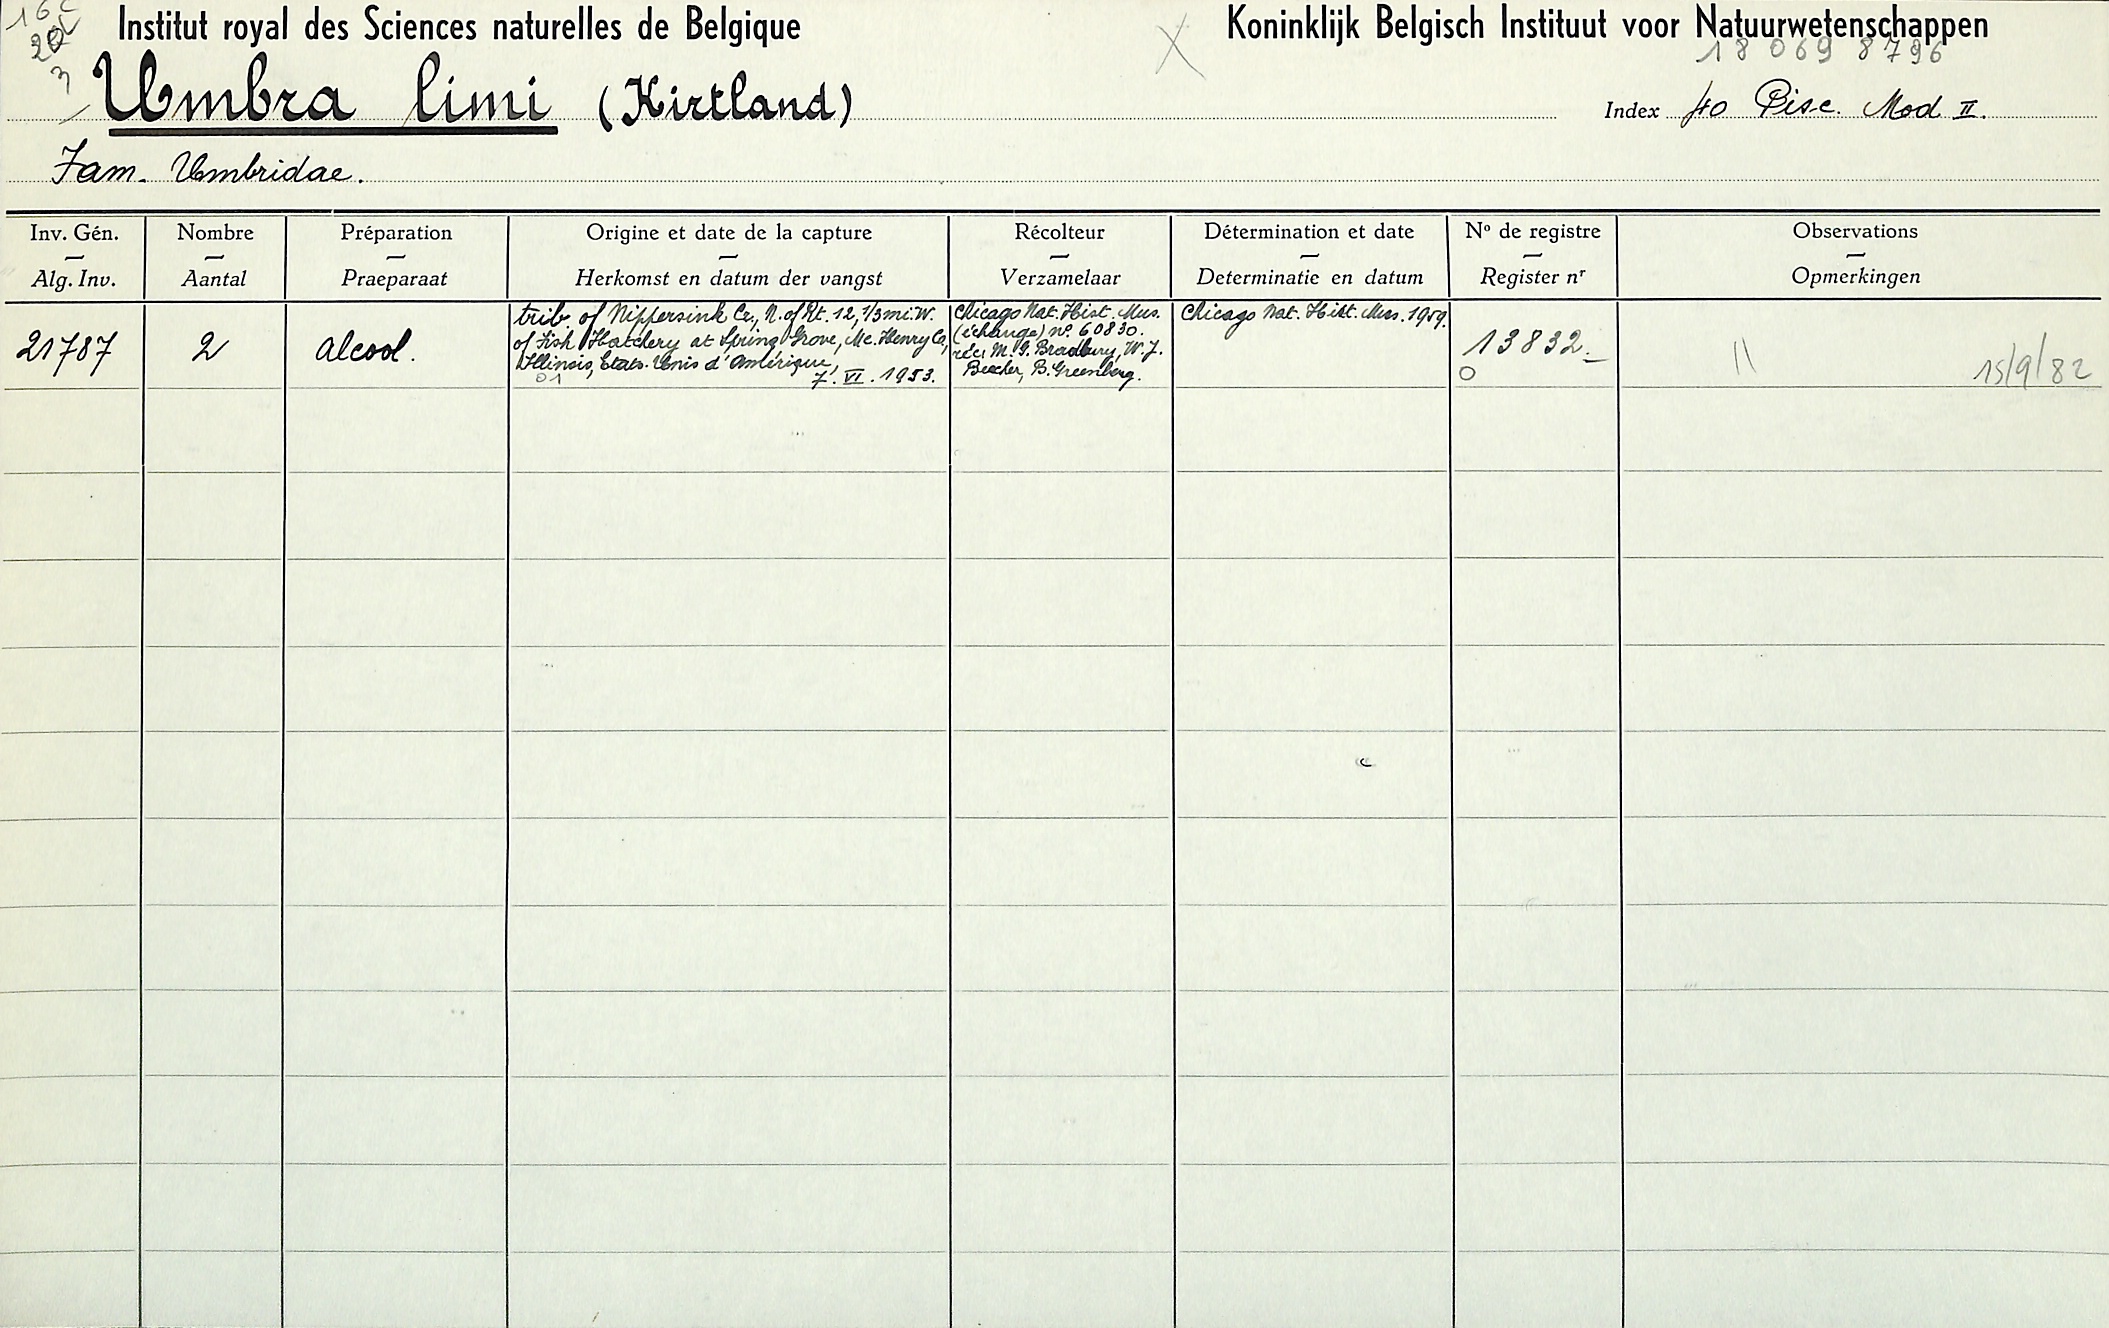 16C
20C
3
Institut royal des Sciences naturelles de Belgique
Koninklijk Belgisch Instituut voor Natuurwetenschappen
18 069 8796
Umbra limi (Kirtland)
Index 40 Pisc. Mod II.
Fam. Umbridae.
Inv. Gén. Nombre Préparation Origine et date de la capture Récolteur Détermination et date No de registre Observations
Alg. Inv. Aantal Praeparaat Herkomst en datum der vangst Verzamelaar Determinatie en datum Register nr Opmerkingen
21787
2
alcool.
trib. of Nippersink Cr., N. of Rt. 12, 1/3 mi. W.
of Fish Hatchery at Spring Grove, Mc. Henry Co,
Illinois, Etats-Unis d'Amérique,
01 7. VI. 1953.
Chicago Nat. Hist. Mus.
(échange) no. 60830.
M. G. Bradbury, W. J.
Beecher, B. Greenberg.
Chicago Nat. Hist. Mus. 1959.
13832._
O
15/9/82